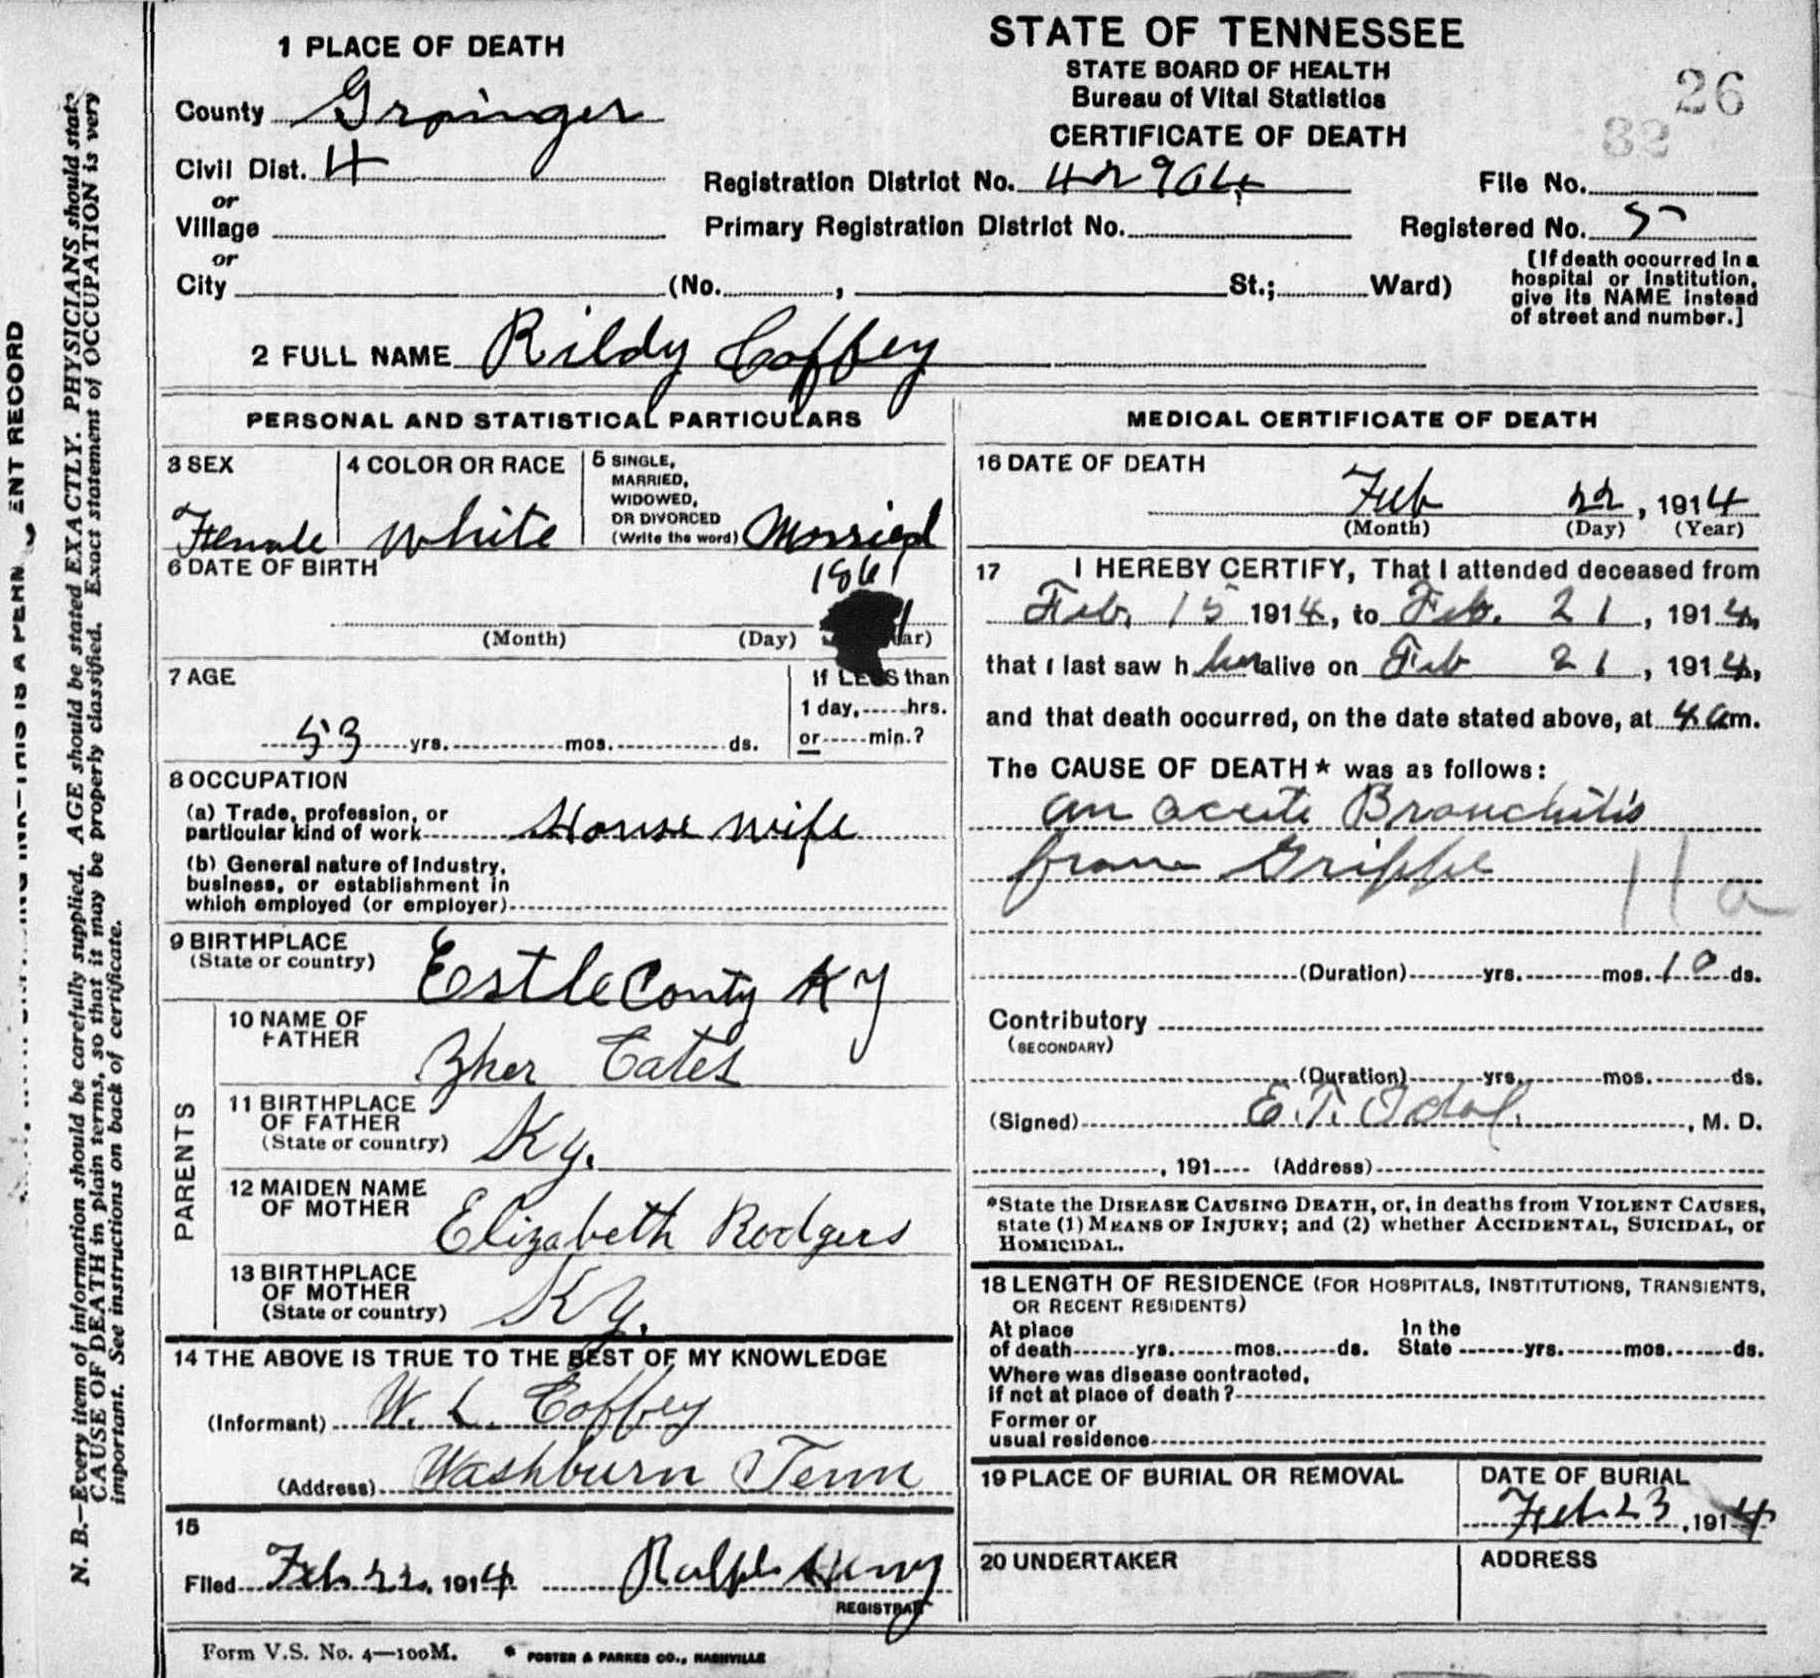 1 PLACE OF DEATH
County Grainger
Civil Dist. 4
or
Village
or
City (No. , St.; Ward)
STATE OF TENNESSEE
STATE BOARD OF HEALTH
Bureau of Vital Statistics
CERTIFICATE OF DEATH
26
32
Registration District No. 42904
File No.
Primary Registration District No.
Registered No. 5
[If death occurred in a
hospital or institution,
give its NAME instead
of street and number.]
2 FULL NAME Rildy Coffey
PERSONAL AND STATISTICAL PARTICULARS
3 SEX
Female
4 COLOR OR RACE
White
5 SINGLE,
MARRIED,
WIDOWED,
OR DIVORCED
(Write the word) Married
6 DATE OF BIRTH
1861
(Month) (Day)
7 AGE
53 yrs. mos. ds.
If LESS than
1 day, hrs.
or min.?
8 OCCUPATION
(a) Trade, profession, or
particular kind of work House wife
(b) General nature of Industry,
business, or establishment in
which employed (or employer)
9 BIRTHPLACE
(State or country) Estle Conty Ky
PARENTS
10 NAME OF
FATHER Cates
11 BIRTHPLACE
OF FATHER
(State or country) Ky.
12 MAIDEN NAME
OF MOTHER Elizabeth Rodgers
13 BIRTHPLACE
OF MOTHER
(State or country) Ky.
14 THE ABOVE IS TRUE TO THE BEST OF MY KNOWLEDGE
(Informant) W. L. Coffey
(Address) Washburn Tenn
15
Filed Feb 22, 1914 Ralph
REGISTRAR
MEDICAL CERTIFICATE OF DEATH
16 DATE OF DEATH
Feb 22, 1914
(Month) (Day) (Year)
17 I HEREBY CERTIFY, That I attended deceased from
Feb. 15 1914, to Feb. 21, 1914,
that I last saw h her alive on Feb 21, 1914,
and that death occurred, on the date stated above, at 4 am.
The CAUSE OF DEATH* was as follows:
an acute Bronchitis
from Grippe
11a
(Duration) yrs. mos. 10 ds.
Contributory
(SECONDARY)
(Duration) yrs. mos. ds.
(Signed) E. T. , M. D.
, 191 (Address)
*State the DISEASE CAUSING DEATH, or, in deaths from VIOLENT CAUSES,
state (1) MEANS OF INJURY; and (2) whether ACCIDENTAL, SUICIDAL, or
HOMICIDAL.
18 LENGTH OF RESIDENCE (FOR HOSPITALS, INSTITUTIONS, TRANSIENTS,
OR RECENT RESIDENTS)
At place
of death yrs. mos. ds.
In the
State yrs. mos. ds.
Where was disease contracted,
if not at place of death?
Former or
usual residence
19 PLACE OF BURIAL OR REMOVAL
DATE OF BURIAL
Feb 23, 1914
20 UNDERTAKER
ADDRESS
Form V.S. No. 4—100M.
FOSTER & PARKES CO., NASHVILLE
N. B.—Every item of information should be carefully supplied. AGE should be stated EXACTLY. PHYSICIANS should state
CAUSE OF DEATH in plain terms, so that it may be properly classified. Exact statement of OCCUPATION is very
important. See instructions on back of certificate.
THIS IS A ENT RECORD